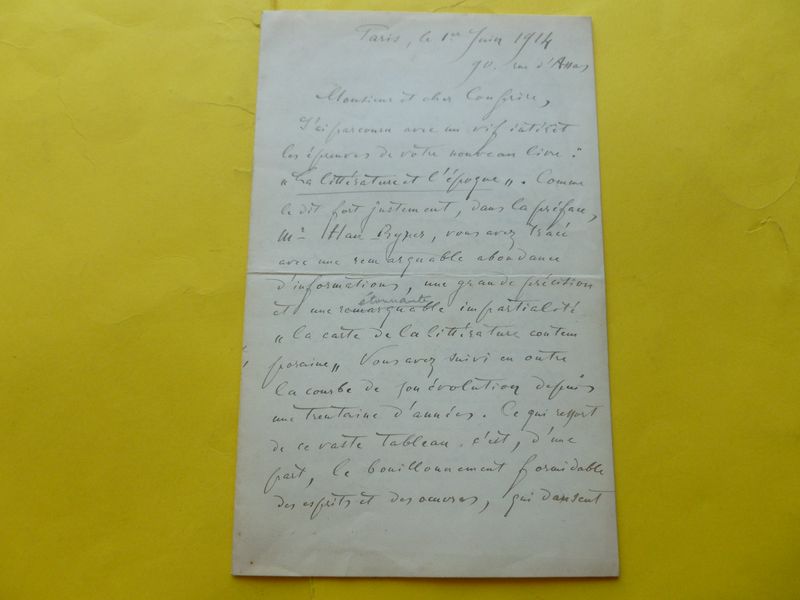 Paris, le 1er Juin 1914
90. rue d'Assas
Monsieur et cher Confrère,
J'ai parcouru avec un vif intérêt
les épreuves de votre nouveau livre :
"La littérature et l'époque". Comme
le dit fort justement, dans la préface,
Mr Han Ryner, vous avez tracé
avec une remarquable abondance
d'informations, une grande précision
étonnante
et une remarquable impartialité
"la carte de la littérature contem
poraine" Vous avez suivi en outre
la courbe de son évolution depuis
une trentaine d'années. Ce qui ressort
de ce vaste tableau, c'est, d'une
part, le bouillonnement formidable
des esprits et des œuvres, qui dansent